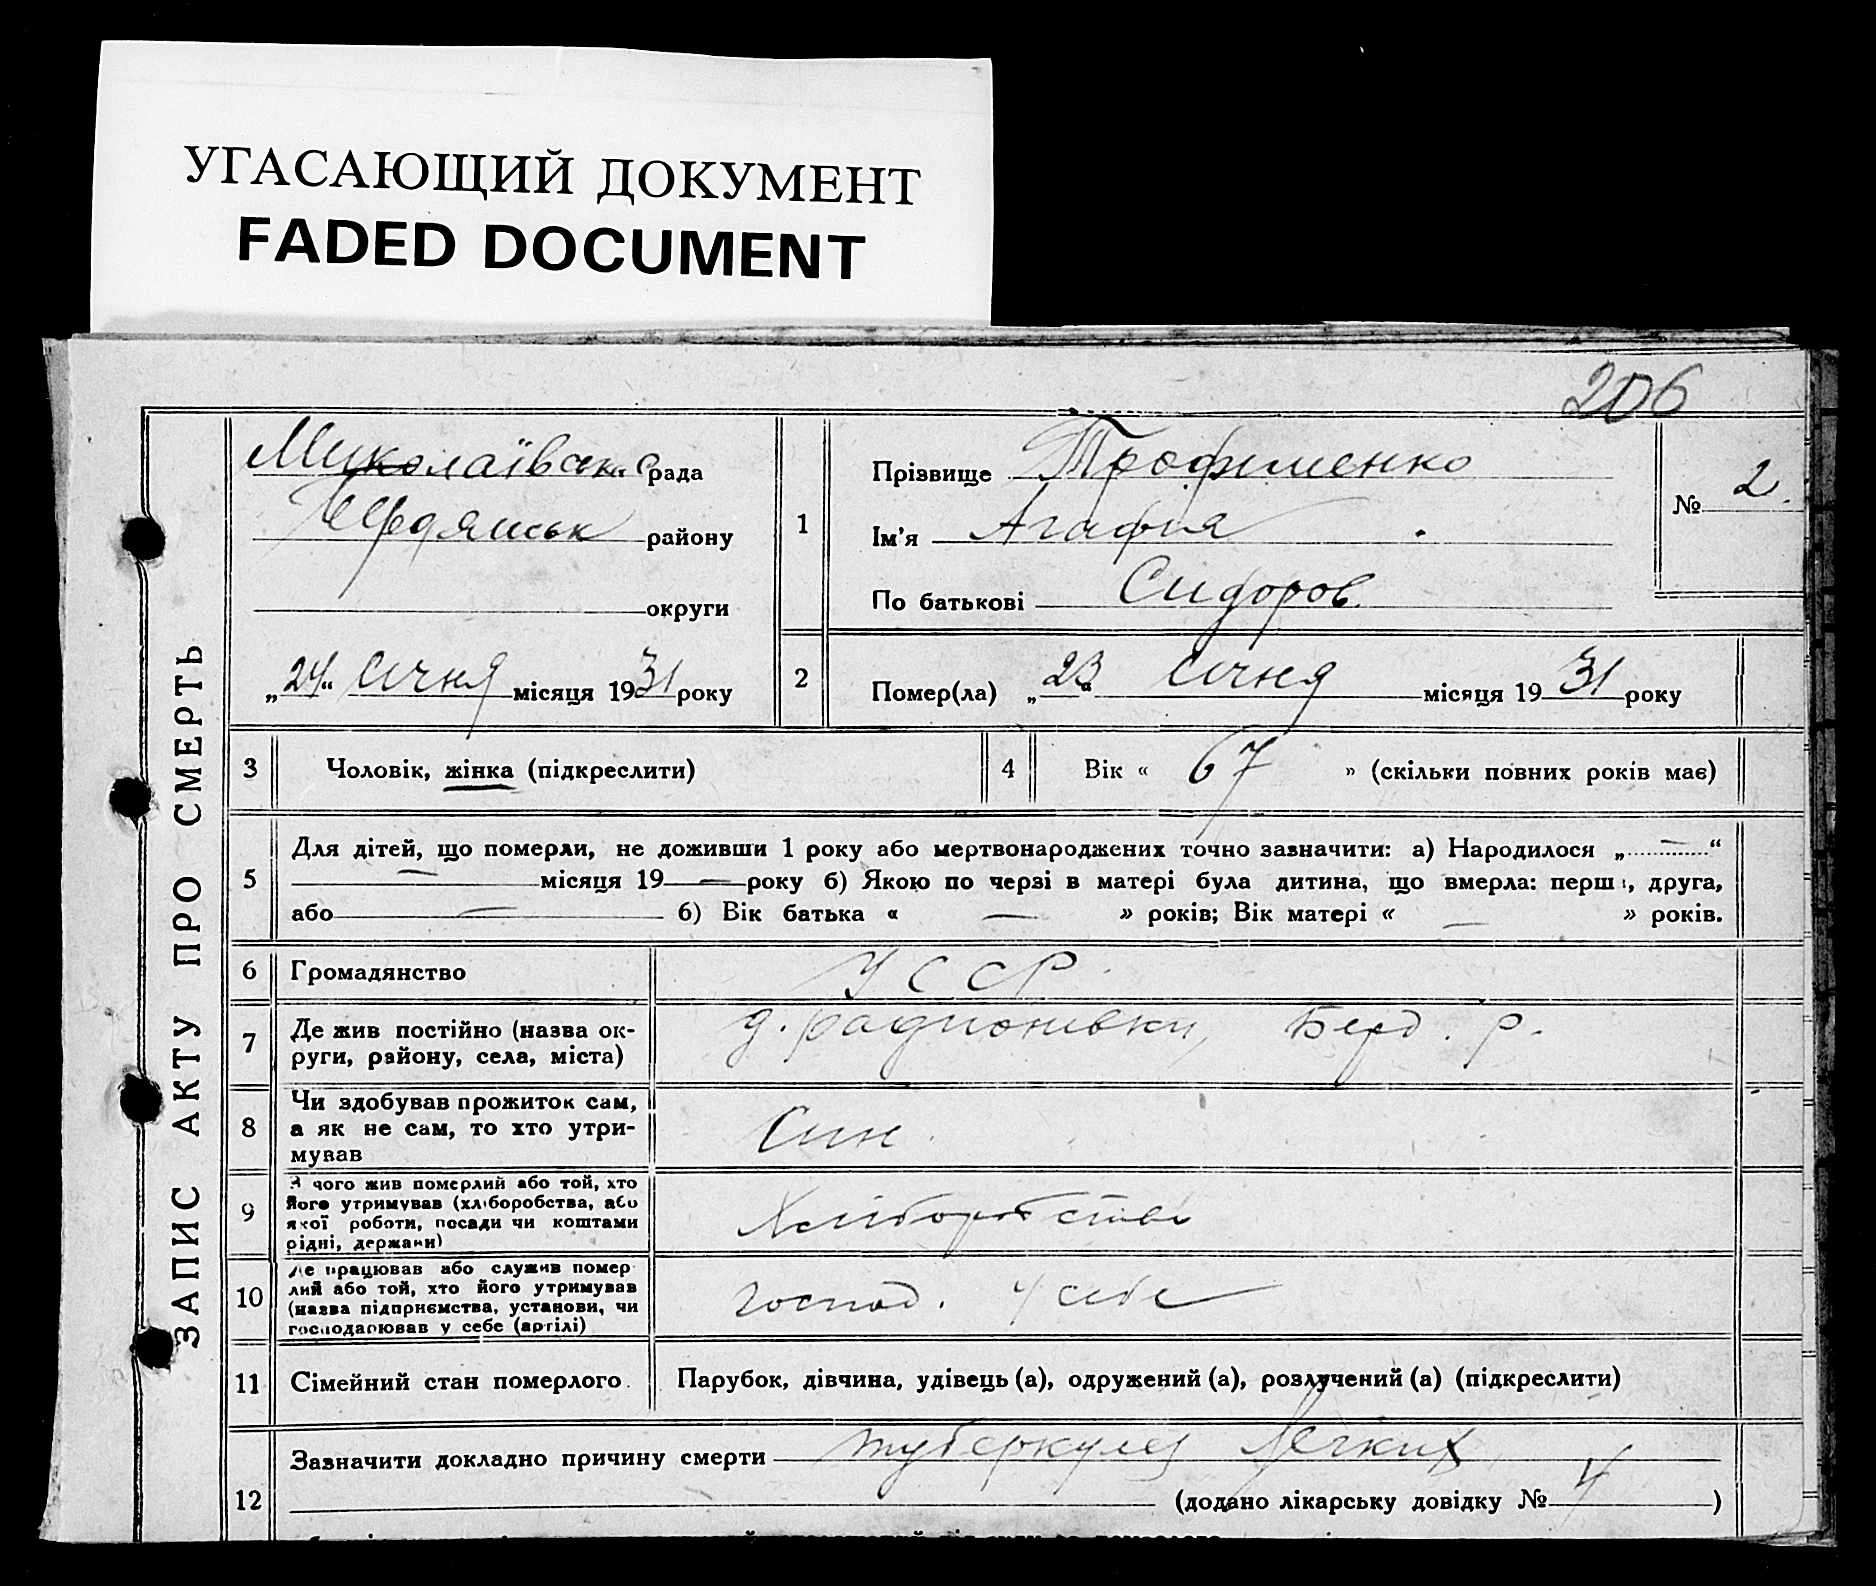 УГАСАЮЩИЙ ДОКУМЕНТ
FADED DOCUMENT
206
ЗАПИС АКТУ ПРО СМЕРТЬ
Миколаївськ. рада
району
округи
„24“ січня місяця 1931 року
1
Прізвище Трофименко
Ім'я Агафия
По батькові Сидоров.
№ 2.
2
Помер(ла) „23“ січня місяця 1931 року
3 Чоловік, жінка (підкреслити)
4 Вік « 67 » (скільки повних років має)
5
Для дітей, що померли, не доживши 1 року або мертвонароджених точно зазначити: а) Народилося „ — “
— місяця 19 — року б) Якою по черзі в матері була дитина, що вмерла: перша, друга,
або — б) Вік батька « — » років; Вік матері « — » років.
6 Громадянство УССР.
7
Де жив постійно (назва ок-
руги, району, села, міста)
д. Радионивки, Берд. р.
8
Чи здобував прожиток сам,
а як не сам, то хто утри-
мував
Син
9
З чого жив померлий або той, хто
його утримував (хліборобства, або
якої роботи, посади чи коштами
рідні, держави)
Хліборобства
10
Де працював або служив помер
лий або той, хто його утримував
(назва підприємства, установи, чи
господарював у себе (артілі)
господ. у себе
11 Сімейний стан померлого. Парубок, дівчина, удівець (а), одружений (а), розлучений (а) (підкреслити)
12
Зазначити докладно причину смерти туберкулез легких
(додано лікарську довідку № 4 )